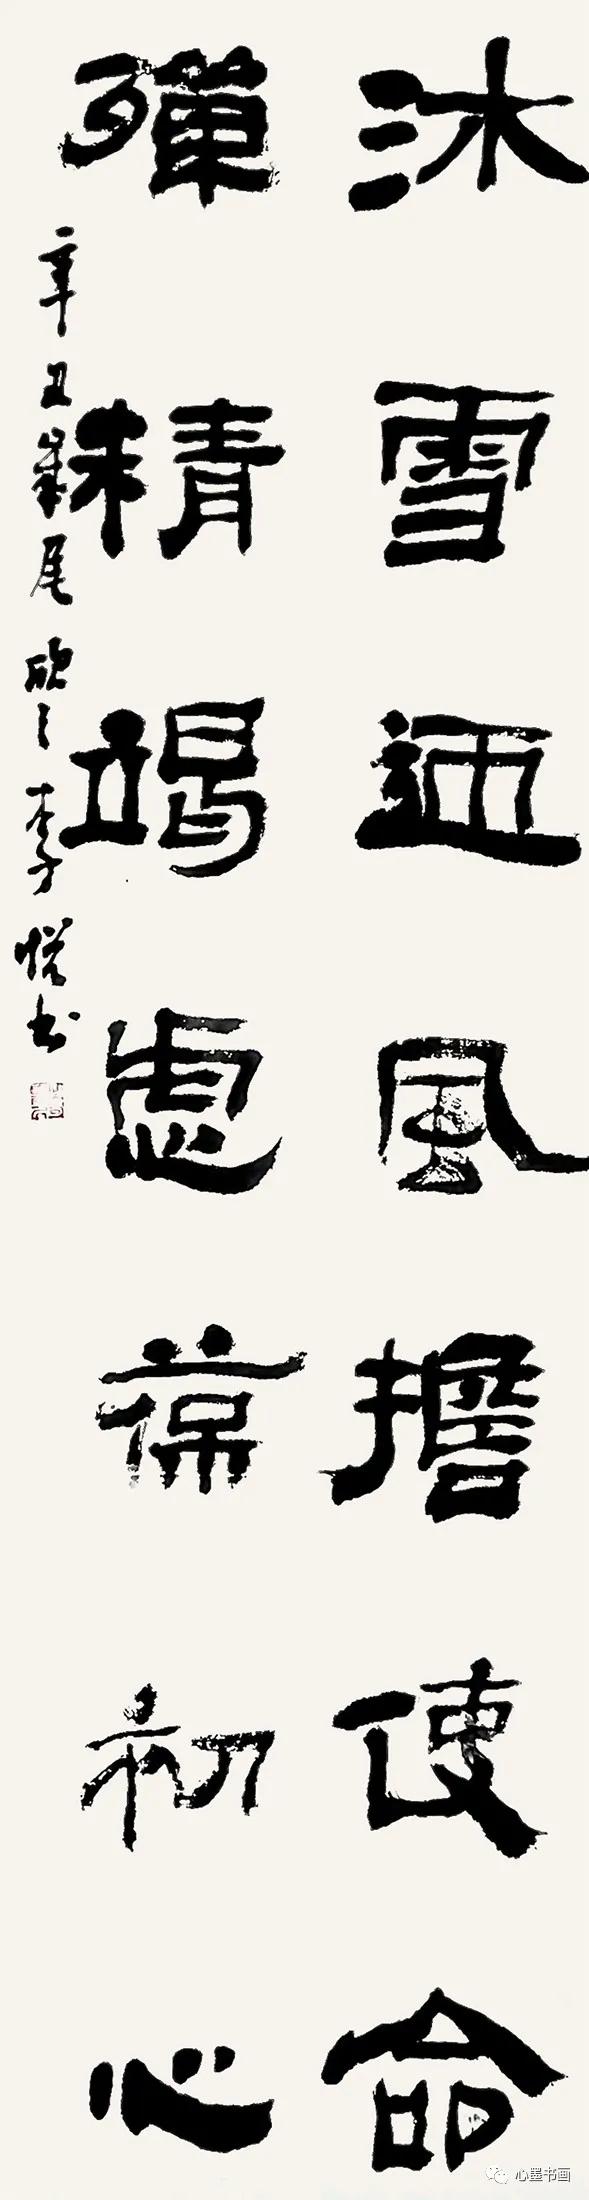 沐雪迎風擔使命
殫精竭慮葆初心
辛丑歲尾 李悦书
心墨书画